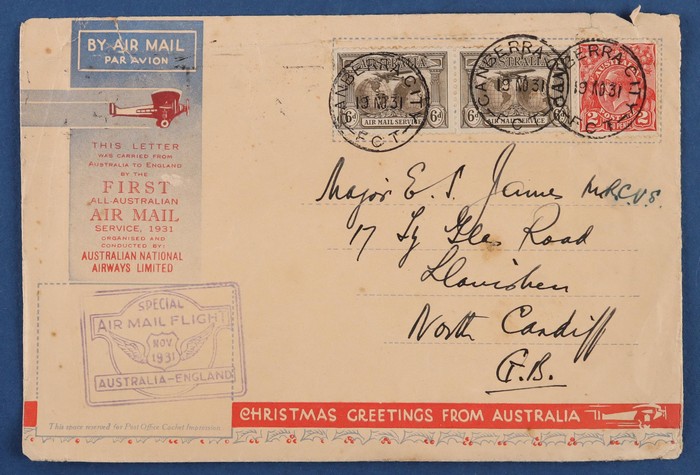 BY AIR MAIL
PAR AVION
THIS LETTER
WAS CARRIED FROM
AUSTRALIA TO ENGLAND
BY THE
FIRST
ALL-AUSTRALIAN
AIR MAIL
SERVICE, 1931
ORGANISED AND
CONDUCTED BY:
AUSTRALIAN NATIONAL
AIRWAYS LIMITED
AUSTRALIA
6d AIR MAIL SERVICE 6d
CANBERRA CITY
19 NO 31
F.C.T
AUSTRALIA
6d AIR MAIL SERVICE
CANBERRA
19 NO 31
2 2
CANBERRA CITY
19 NO 31
F.C.T
Major E. S. James M.R.C.V.S.
17 Ty Glas Road
Llanishen
North Cardiff
G.B.
SPECIAL
AIR MAIL FLIGHT
NOV
1931
AUSTRALIA-ENGLAND
This space reserved for Post Office Cachet Impressions
CHRISTMAS GREETINGS FROM AUSTRALIA